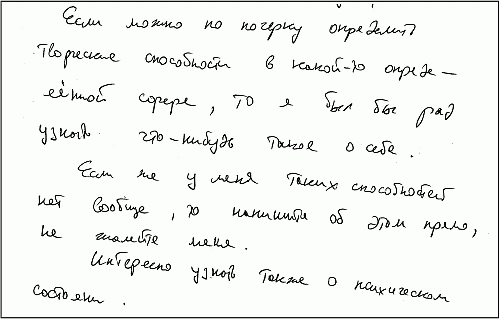 Если можно по почерку определить
творческие способности в какой-то опреде-
лённой сфере, то я был бы рад
узнать что-нибудь такое о себе.
Если же у меня таких способностей
нет вообще, то напишите об этом прямо,
не жалейте меня.
Интересно узнать также о психическом
состоянии.